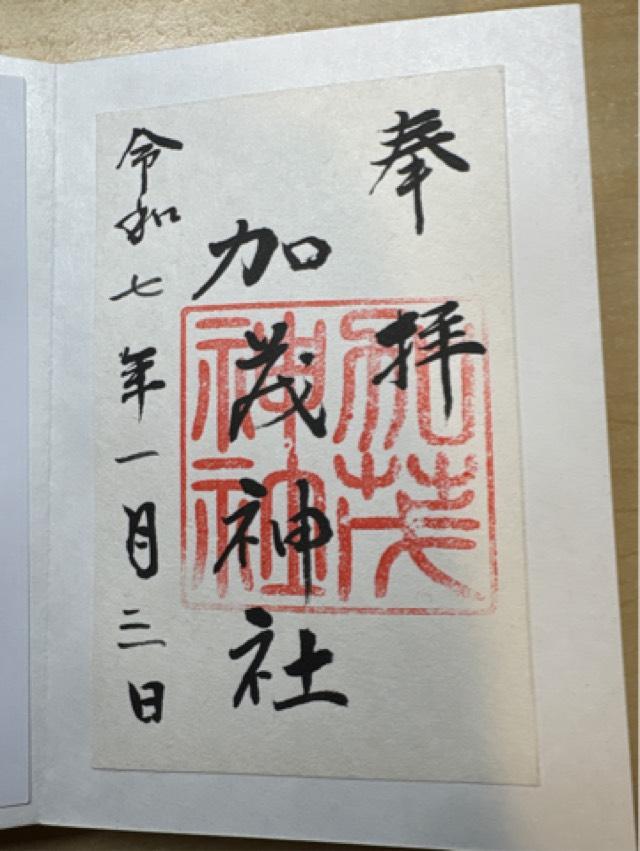 奉拝
加茂神社
加茂神社
令和七年一月三日